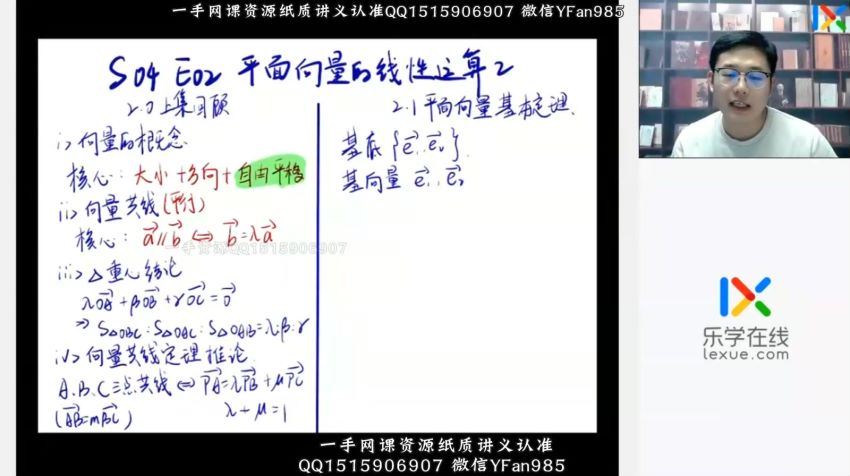 一手网课资源纸质讲义认准QQ1515906907 微信YFan985
S04 E02 平面向量的线性运算2
2.0 上集回顾
i> 向量的概念
核心: 大小+方向+自由平移
ii> 向量共线(平行)
核心: a⃗∥b⃗ ⇔ b⃗=λa⃗
一手资源QQ1515906907
iii> △重心结论
λOA⃗+βOB⃗+γOC⃗=0⃗
⇒ S△OBC:S△OAC:S△OAB=λ:β:γ
iv> 向量共线定理推论
A.B.C三点共线 ⇔ PA⃗=λPB⃗+μPC⃗
(AB⃗=mBC⃗) λ+μ=1
2.1 平面向量基本定理
基底 {e⃗₁,e⃗₂}
基向量 e⃗₁,e⃗₂
乐学在线
lexue.com
一手网课资源纸质讲义认准
QQ1515906907 微信YFan985